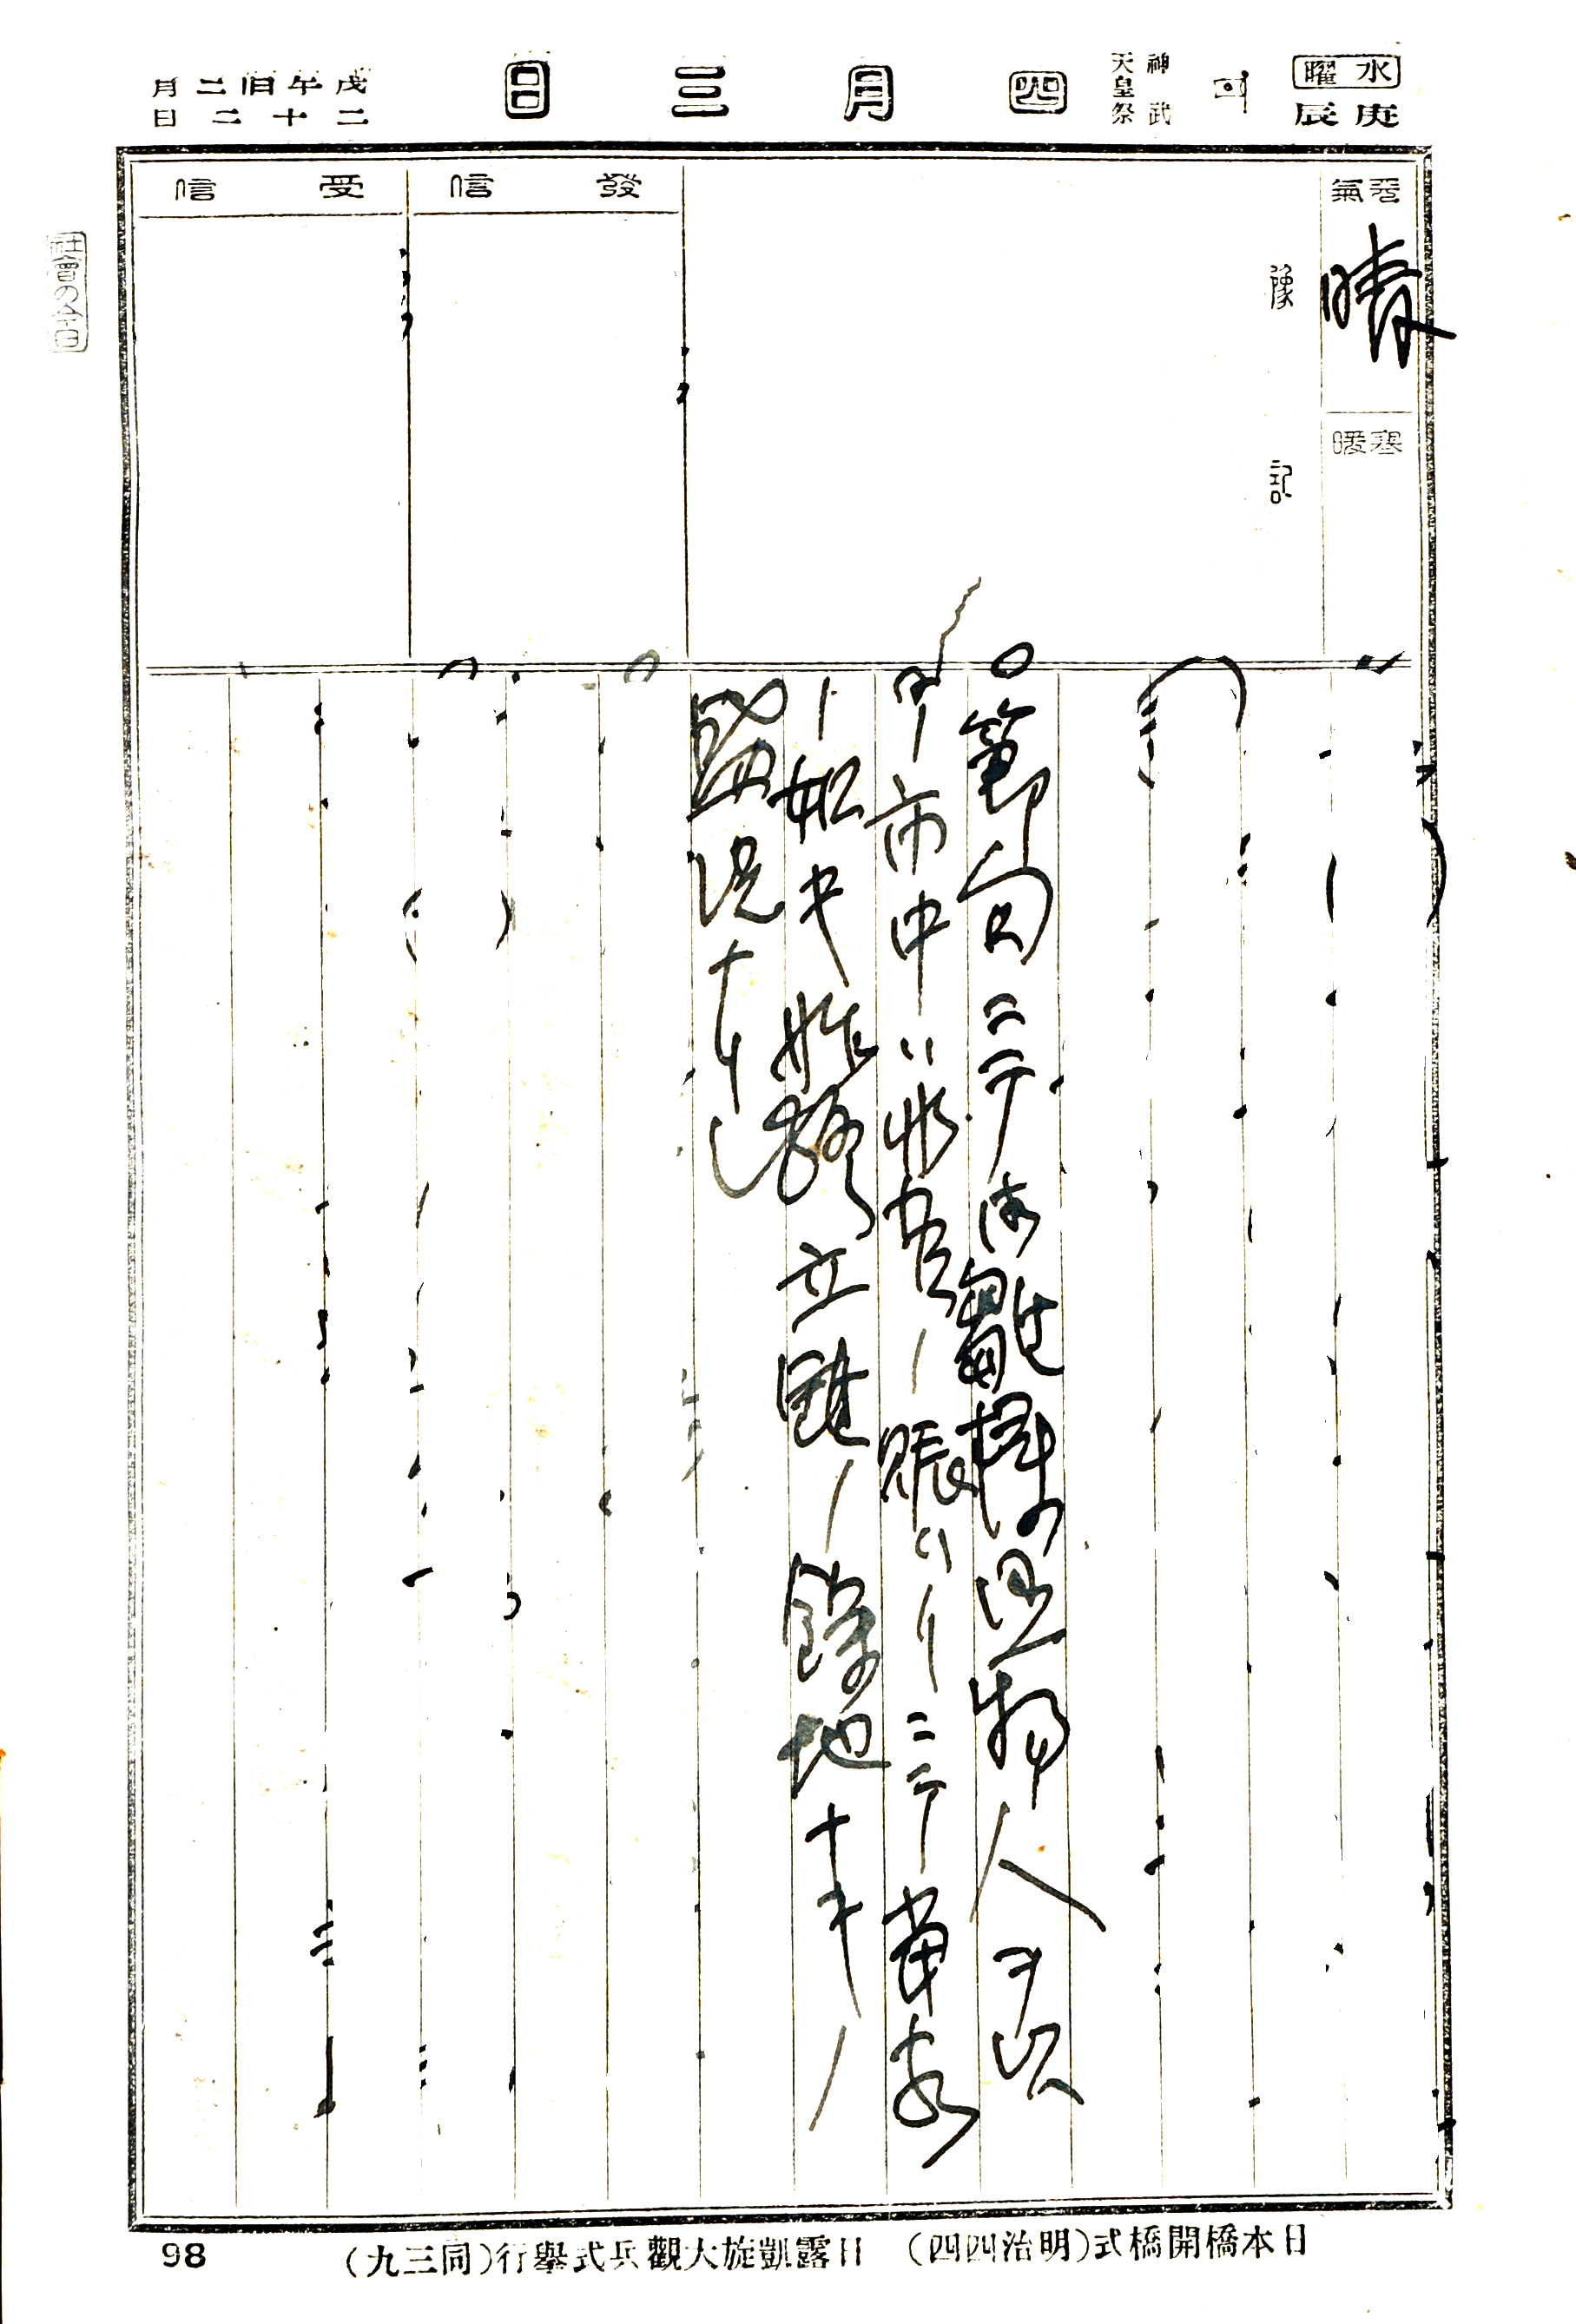 水曜
庚辰
神武天皇祭
四月三日
戊午旧二月
二十二日
天氣
晴
寒暖
豫記
發信
受信
社會の今日
○節句ニテ御雛様見物人ヲ以
テ市中ハ非常ノ賑ハリニテ当家
ノ如キ
立錐ノ餘地ナキノ
盛況ナリし
日本橋開橋式(明治四四) 日露凱旋大觀兵式擧行(同三九)
98